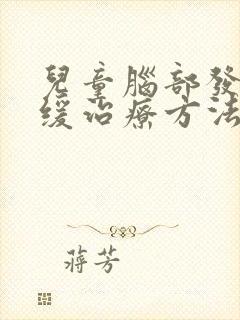 兒童腦部發
緩治療方法
蔣芳